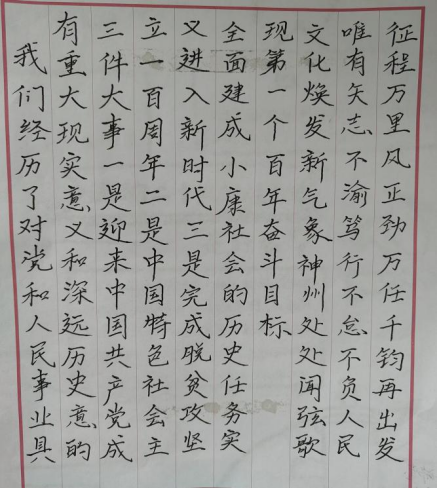 我们经历了对党和人民事业具
有重大现实意义和深远历史意的
三件大事一是迎来中国共产党成
立一百周年二是中国特色社会主
义进入新时代三是完成脱贫攻坚
全面建成小康社会的历史任务实
现第一个百年奋斗目标
文化焕发新气象神州处处闻弦歌
唯有矢志不渝笃行不怠不负人民
征程万里风正劲万任千钧再出发